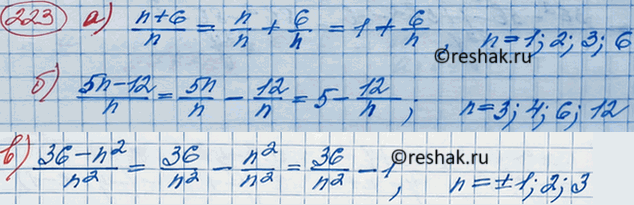 223 а) (n+6)/n = n/n + 6/n = 1 + 6/n, n=1; 2; 3; 6
©reshak.ru
б) (5n-12)/n = 5n/n - 12/n = 5 - 12/n; n=3; 4; 6; 12
©reshak.ru
в) (36-n²)/n² = 36/n² - n²/n² = 36/n² - 1, n=±1; 2; 3